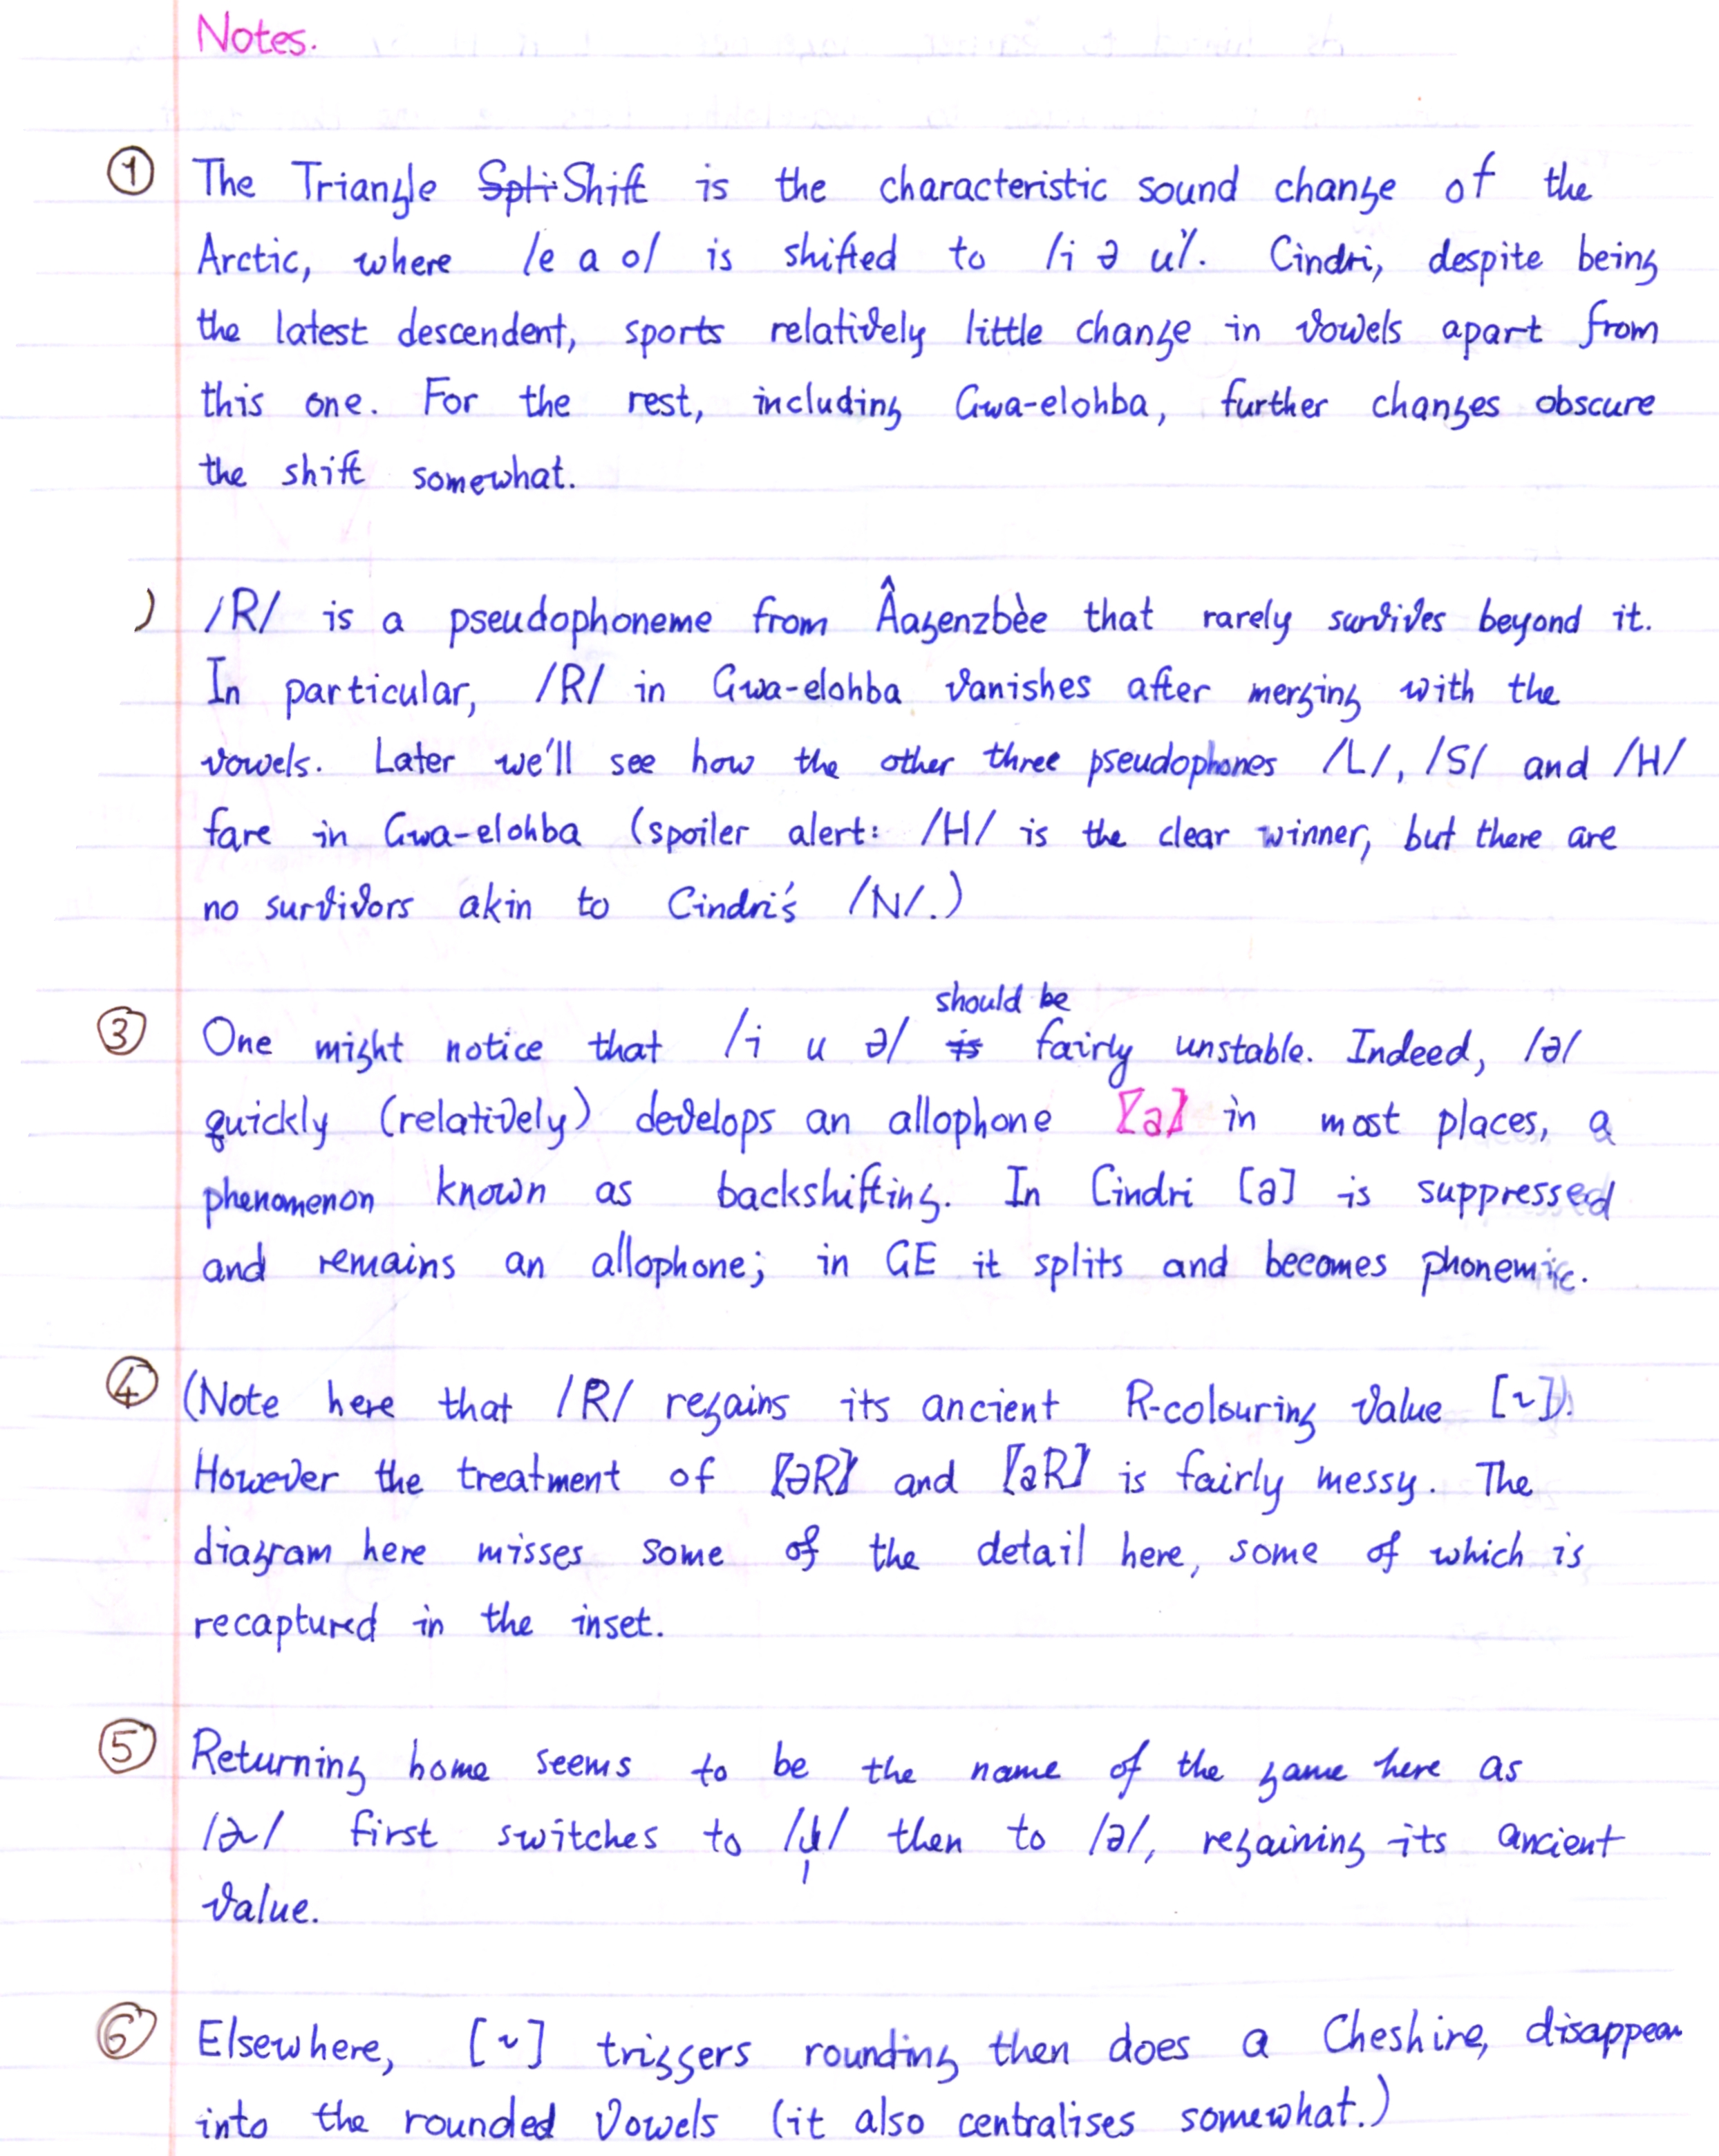 Notes.
① The Triangle Spli Shift is the characteristic sound change of the
Arctic, where /e a o/ is shifted to /i ə u/. Cindri, despite being
the latest descendent, sports relatively little change in vowels apart from
this one. For the rest, including Gwa-elohba, further changes obscure
the shift somewhat.
) /R/ is a pseudophoneme from Âagenzbèe that rarely survives beyond it.
In particular, /R/ in Gwa-elohba vanishes after merging with the
vowels. Later we'll see how the other three pseudophones /L/, /S/ and /H/
fare in Gwa-elohba (spoiler alert: /H/ is the clear winner, but there are
no survivors akin to Cindri's /N/.)
should be
③ One might notice that /i u ə/ is fairly unstable. Indeed, /ə/
quickly (relatively) develops an allophone [a] in most places, a
phenomenon known as backshifting. In Cindri [a] is suppressed
and remains an allophone; in GE it splits and becomes phonemic.
④ (Note here that /R/ regains its ancient R-colouring value [~]).
However the treatment of [əR] and [aR] is fairly messy. The
diagram here misses some of the detail here, some of which is
recaptured in the inset.
⑤ Returning home seems to be the name of the game here as
first switches to then to /a/, regaining its ancient
value.
⑥ Elsewhere, [~] triggers rounding then does a Cheshire, disappear
into the rounded vowels (it also centralises somewhat.)